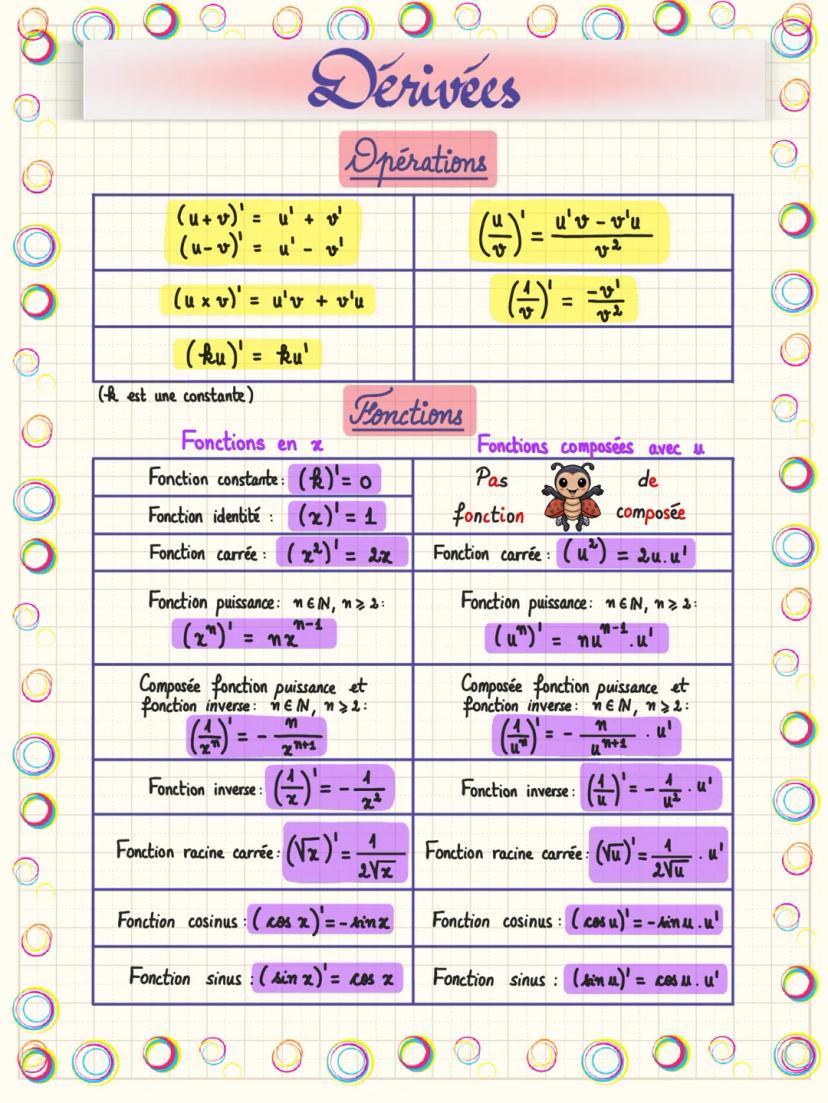 Dérivées
Opérations
(u + v)' = u' + v'
(u - v)' = u' - v'
(u/v)' = (u'v - v'u)/v²
(u × v)' = u'v + v'u
(1/v)' = -v'/v²
(ku)' = ku'
(k est une constante)
Fonctions
Fonctions en x
Fonctions composées avec u
Fonction constante: (k)' = 0
Pas de
fonction composée
Fonction identité : (x)' = 1
Fonction carrée : (x²)' = 2x
Fonction carrée : (u²) = 2u.u'
Fonction puissance: n ∈ ℕ, n ⩾ 2:
(xⁿ)' = nxⁿ⁻¹
Fonction puissance: n ∈ ℕ, n ⩾ 2:
(uⁿ)' = nuⁿ⁻¹.u'
Composée fonction puissance et
fonction inverse: n ∈ ℕ, n ⩾ 2:
(1/xⁿ)' = - n/xⁿ⁺¹
Composée fonction puissance et
fonction inverse: n ∈ ℕ, n ⩾ 2:
(1/uⁿ)' = - n/uⁿ⁺¹ . u'
Fonction inverse: (1/x)' = - 1/x²
Fonction inverse: (1/u)' = - 1/u² . u'
Fonction racine carrée: (√x)' = 1/2√x
Fonction racine carrée: (√u)' = 1/2√u . u'
Fonction cosinus : (cos x)' = -sin x
Fonction cosinus : (cos u)' = -sin u . u'
Fonction sinus : (sin x)' = cos x
Fonction sinus : (sin u)' = cos u . u'